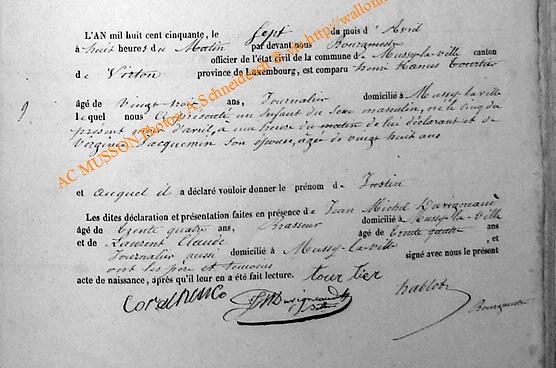 L'AN mil huit cent cinquante, le sept du mois d'Avril
à huit heures du Matin par devant nous Bourgmestre
officier de l'état civil de la commune de Mussy-la-ville canton
de Virton province de Luxembourg, est comparu henri
9
âgé de Vingt-trois ans, Journalier domicilié à Mussy-la-ville
lequel nous a présenté un Enfant du Sexe masculin, né le cinq du
présent mois d'avril, à une heure du matin de lui déclarant et de
Virginie Jacquemin son épouse, agée de vingt huit ans
et auquel il a déclaré vouloir donner le prénom de
Les dites déclaration et présentation faites en présence de Jean Michel Duvigneaud
âgé de trente quatre ans, Brasseur domicilié à Mussy-la-Ville
et de Laurent Claude âgé de trente quatre ans
Journalier aussi domicilié à Mussy-la-ville, et
ont les père et témoins signé avec nous le présent
acte de naissance, après qu'il leur en a été fait lecture. tourtier
Duvigneaud
hablot
Bourgmestre
AC MUSSON Photos: A.Schneider